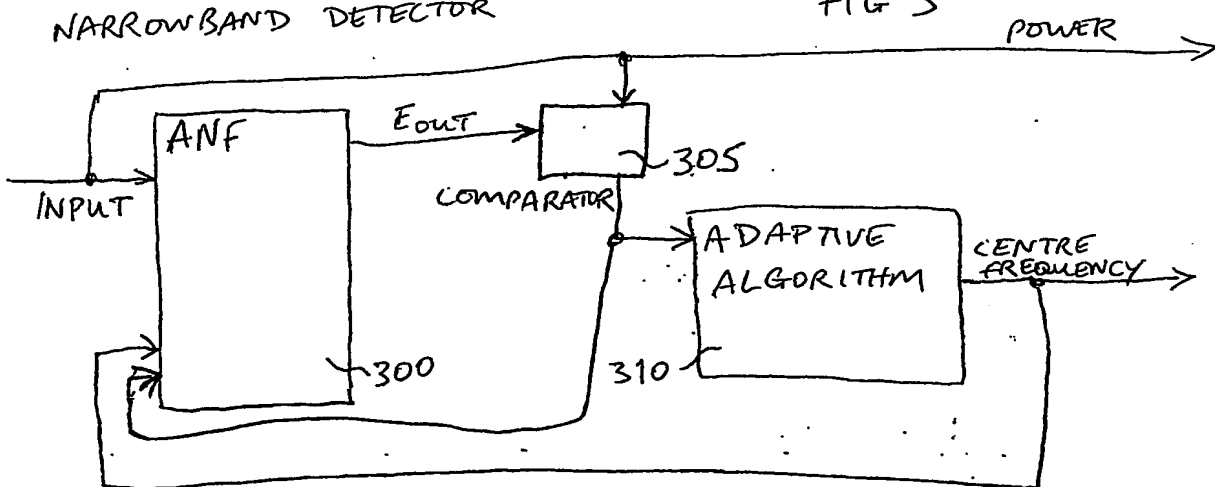 NARROWBAND DETECTOR
FIG 3
POWER
ANF
EOUT
305
INPUT
COMPARATOR
ADAPTIVE
ALGORITHM
CENTRE
FREQUENCY
300
310